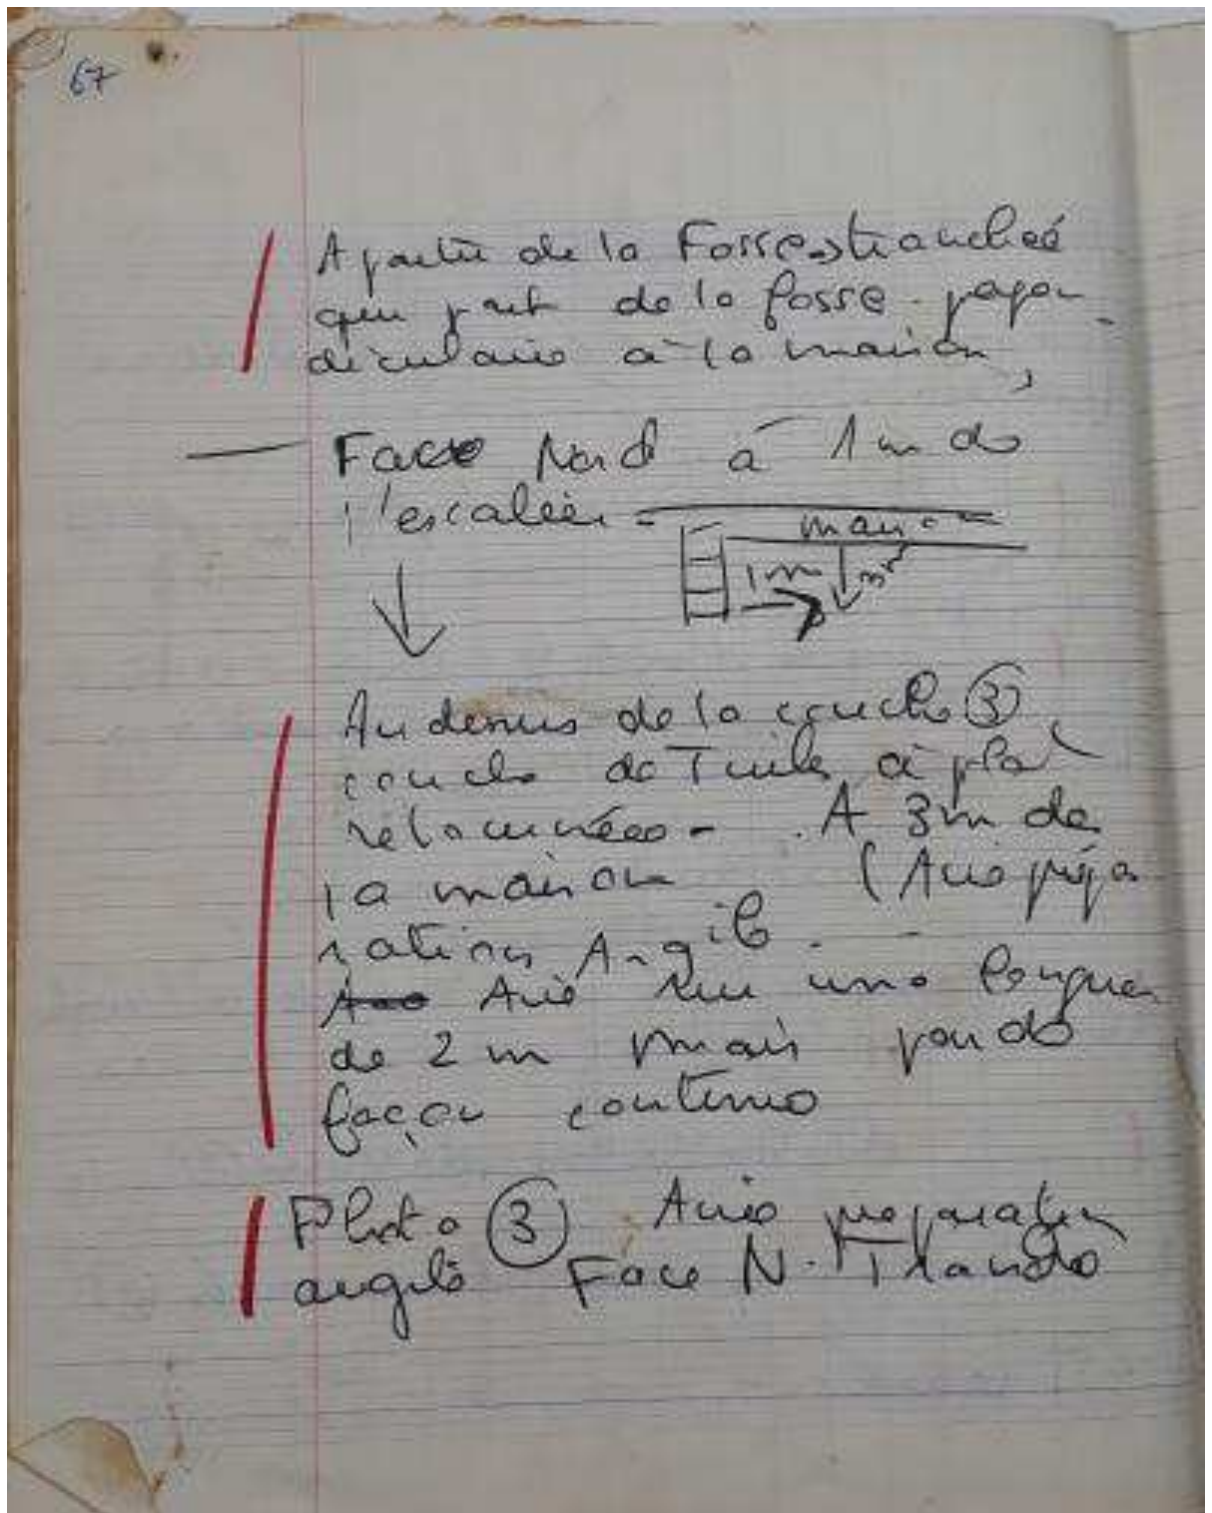 67
A partir de la Fosse, tranchée
qui part de la fosse perpen-
diculaire à la maison,
— Face Nord à 1 m de
l'escalier -
maison
1m 3m
Au dessus de la couche ③,
couche de Tuiles à plat
A 3m de
la maison (Aire prépa
ration Argile -
Aire sur une longueur
de 2 m mais pas de
façon continue
Photo ③ Aire preparation
argile Face N. Tranche